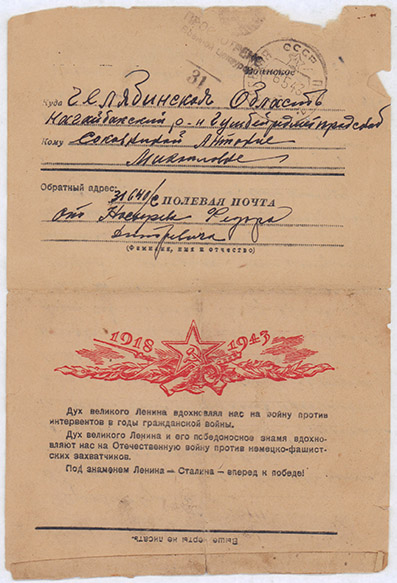 ПРОСМОТРЕНО
Военной Цензурой
31
СССР
6.5.43
Воинское
Куда Челябинская Область
Нагайбакский р-н
Кому
Обратный адрес: 31640/с ПОЛЕВАЯ ПОЧТА
от Федора
Дмитриевича
(Фамилия, имя и отчество)
1918 1943
Дух великого Ленина вдохновлял нас на войну против
интервентов в годы гражданской войны.
Дух великого Ленина и его победоносное знамя вдохно-
вляют нас на Отечественную войну против немецко-фашист-
ских захватчиков.
Под знаменем Ленина — Сталина — вперед к победе!
Выше черты не писать.